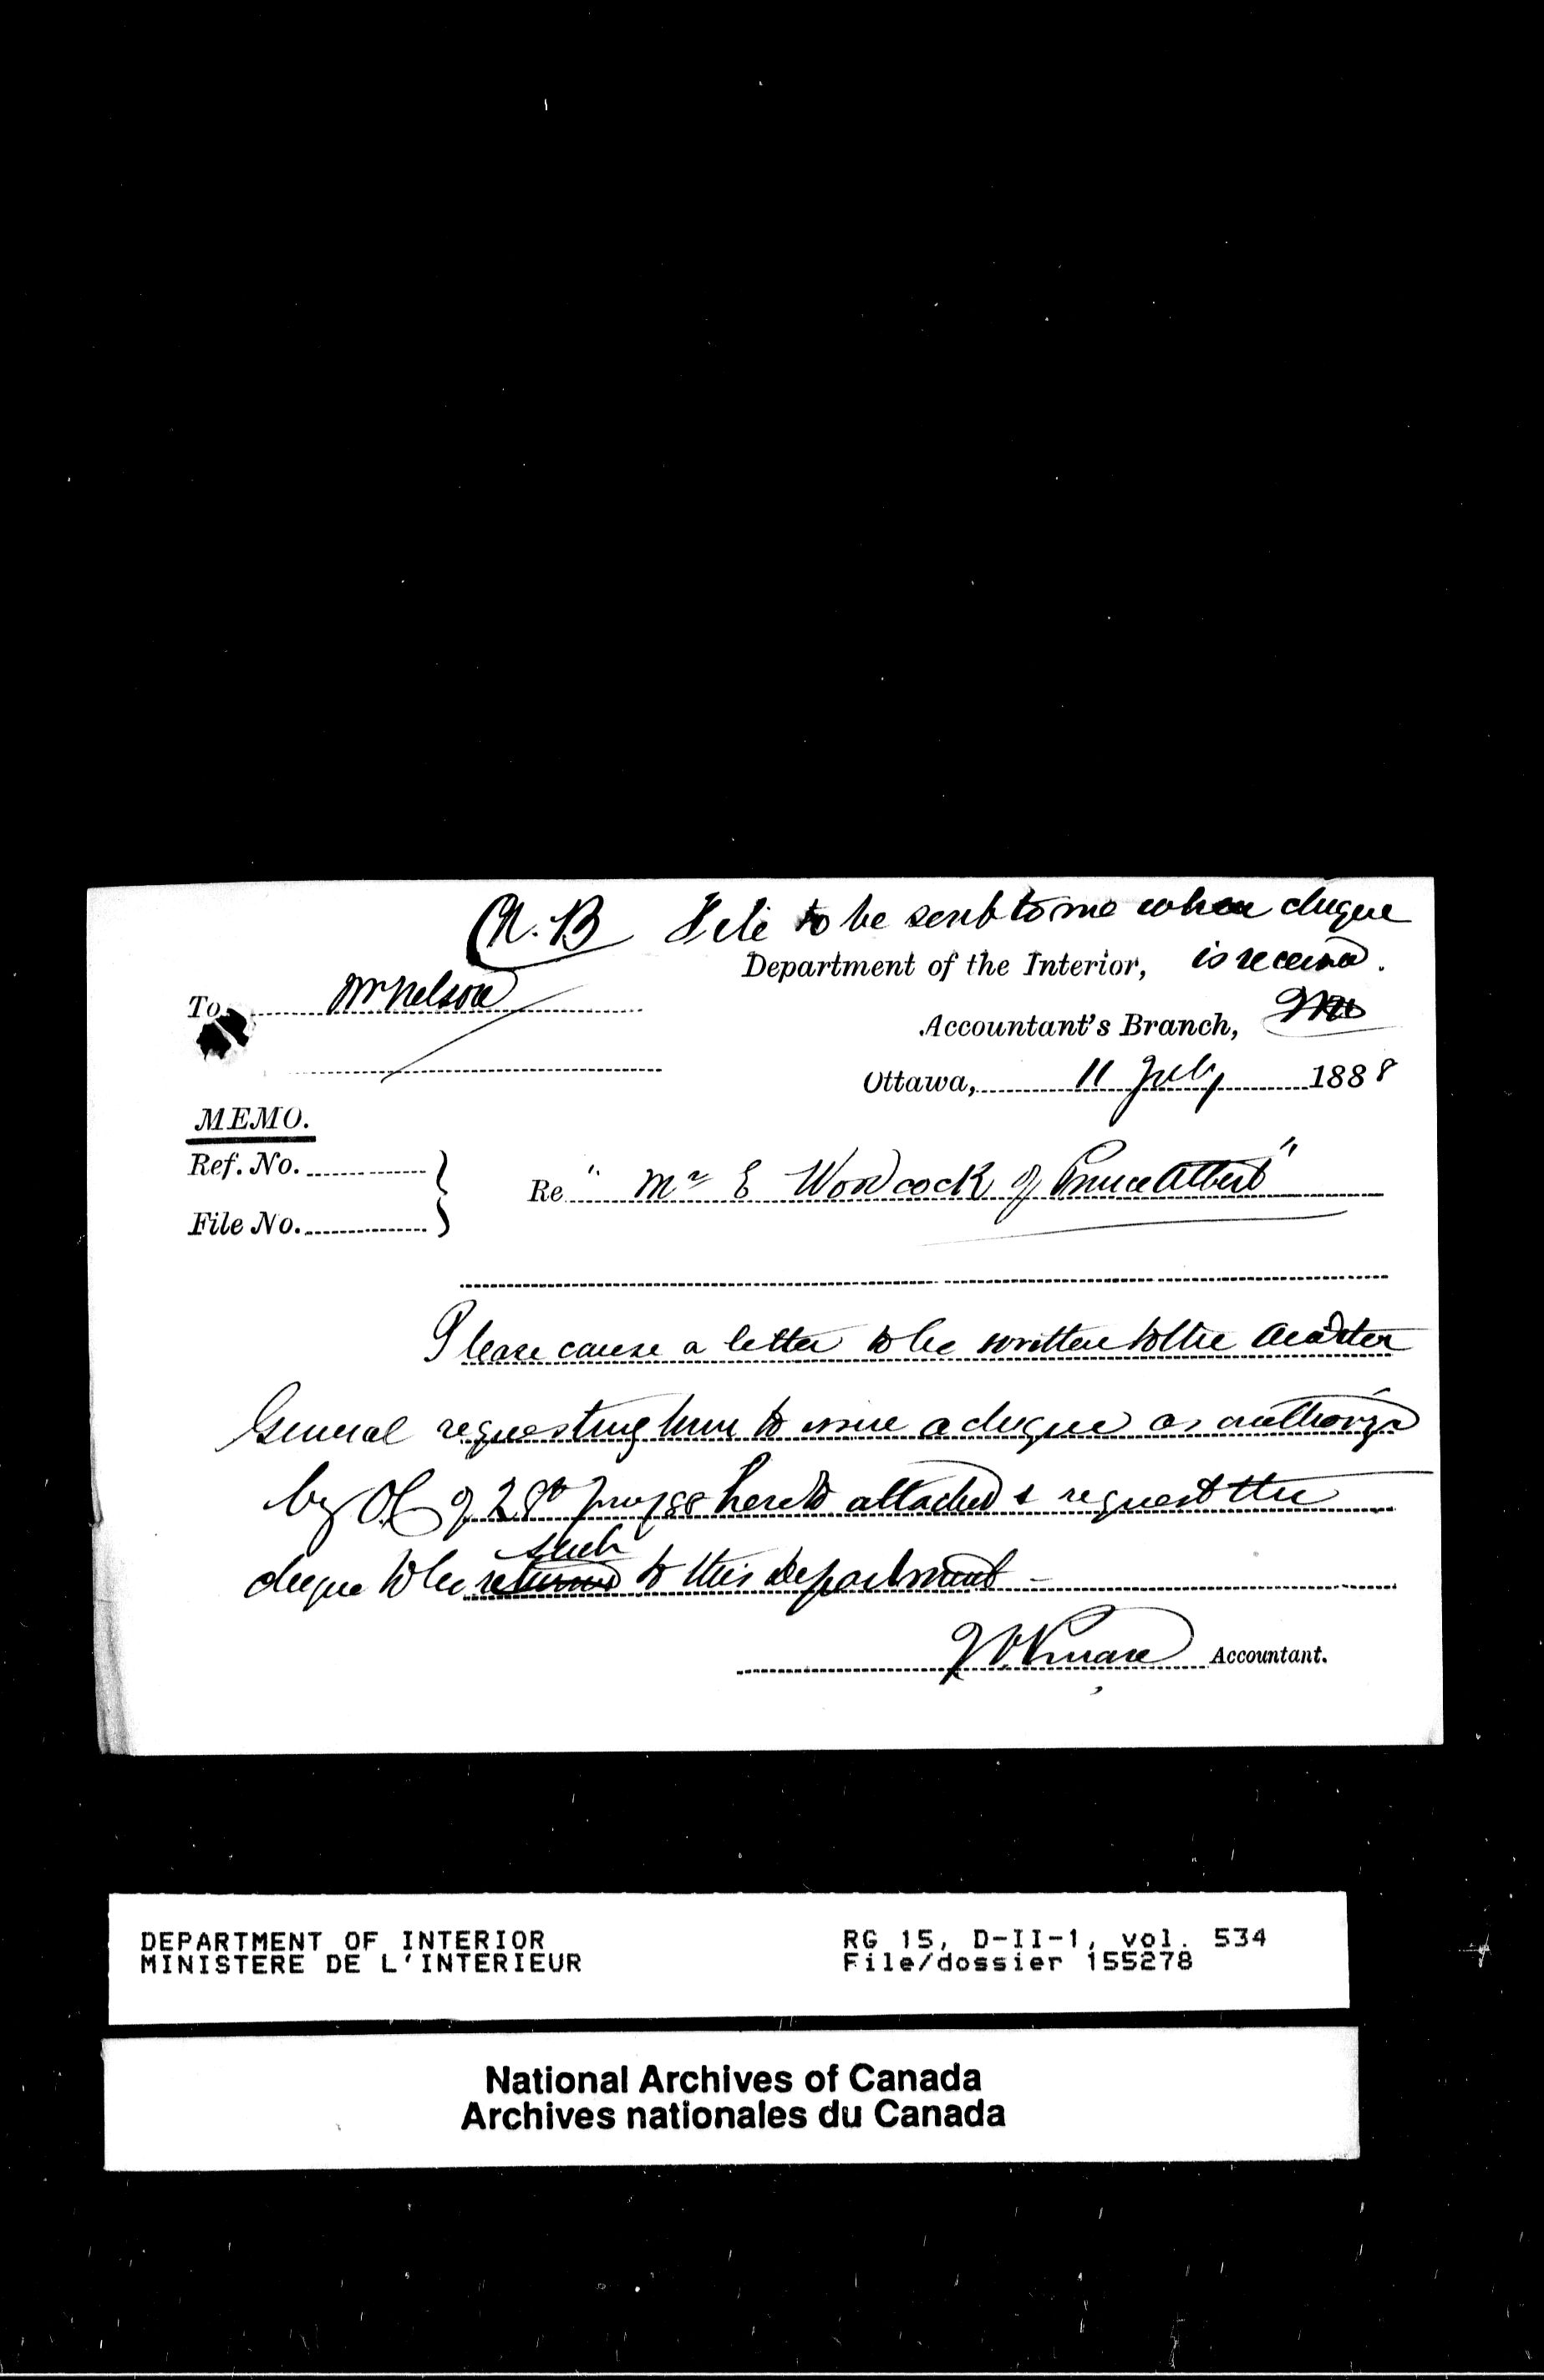 N.B File to be sent to me when cheque
is received.
Department of the Interior,
To Mr Nelson
Accountant's Branch,
Ottawa, 11 July 1888
MEMO.
Ref. No.
File No.
Re " Mr E Woodcock of Prince Albert "
Please cause a letter to be written to the Auditor
General requesting him to issue a cheque as authorized
by OC of 28th hereto attached & request the
such
cheque to be returned to this Department -
Accountant.
DEPARTMENT OF INTERIOR
MINISTERE DE L'INTERIEUR
RG 15, D-II-1, vol. 534
File/dossier 155278
National Archives of Canada
Archives nationales du Canada